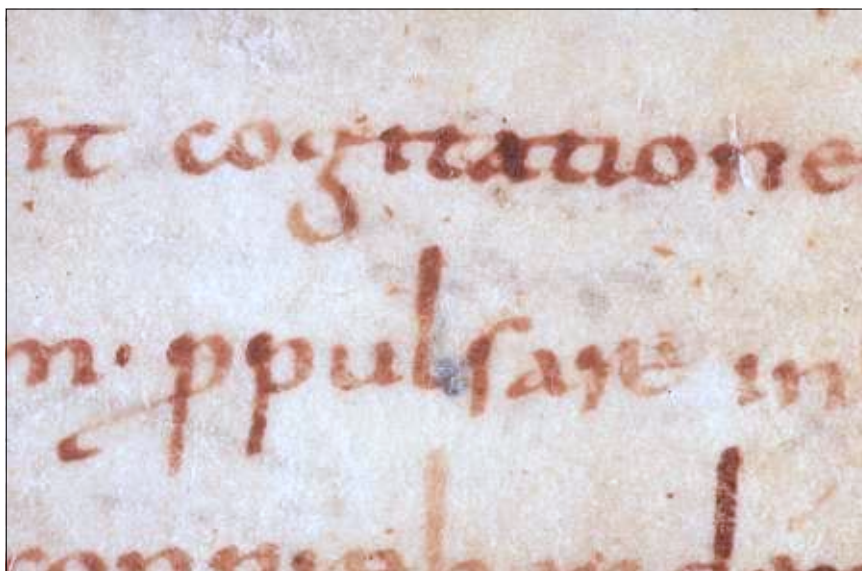 nt cogitatione
n· ꝓpulsare in